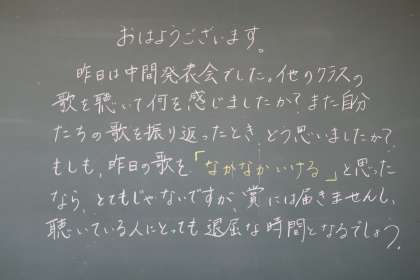 おはようございます。
昨日は中間発表会でした。他のクラスの
歌を聴いて何を感じましたか？また自分
たちの歌を振り返ったとき、どう思いましたか？
もしも、昨日の歌を「なかなかいける」と思った
なら、とてもじゃないですが、賞には届きませんし、
聴いている人にとっても退屈な時間となるでしょう。